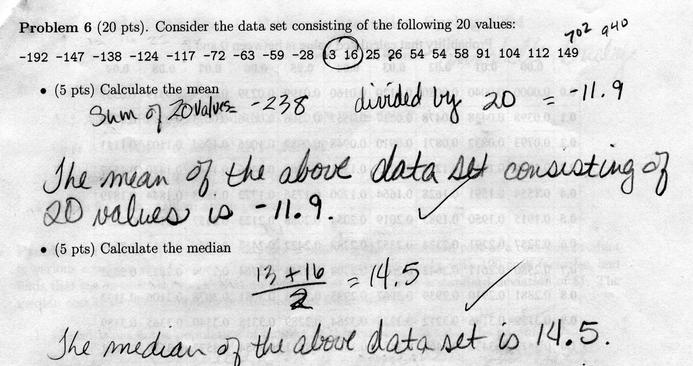 Problem 6 (20 pts). Consider the data set consisting of the following 20 values:
702 940
-192 -147 -138 -124 -117 -72 -63 -59 -28 13 16 25 26 54 54 58 91 104 112 149
• (5 pts) Calculate the mean
Sum of 20 values = -238 divided by 20 = -11.9
The mean of the above data set consisting of
20 values is -11.9. ✓
• (5 pts) Calculate the median
13 + 16
2
= 14.5 ✓
The median of the above data set is 14.5.